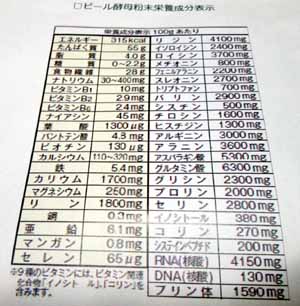 □ビール酵母粉末栄養成分表示
栄養成分表示 100gあたり
エネルギー 315kcal リジン 4100mg
たんぱく質 55g イソロイシン 2400mg
脂質 ロイシン 3700mg
糖質 0〜2.2g メチオニン 800mg
食物繊維 28g フェニルアラニン 2200mg
ナトリウム 30〜400mg スレオニン 2700mg
ビタミンB1 10mg トリプトファン 700mg
ビタミンB2 2.9mg バリン 2900mg
ビタミンB6 2.4mg シスチン 500mg
ナイアシン 45mg チロシン 1600mg
葉酸 ヒスチジン 1300mg
パントテン酸 4.3mg アルギニン 3000mg
ビオチン 130μg アラニン 3600mg
カルシウム 110〜320mg アスパラギン酸 5300mg
鉄 5.4mg グルタミン酸 6300mg
カリウム 1700mg グリシン 2300mg
マグネシウム 250mg プロリン 2000mg
リン 1800mg セリン 2800mg
銅 0.3mg イノシトール 380mg
亜鉛 6.1mg コリン 270mg
マンガン 0.8mg システインペプチド 200mg
セレン 65μg RNA(核酸) 4150mg
※9種のビタミンには、ビタミン関連 DNA(核酸) 130mg
化合物「イノシトール」、「コリン」を プリン体 1590mg
含みます。